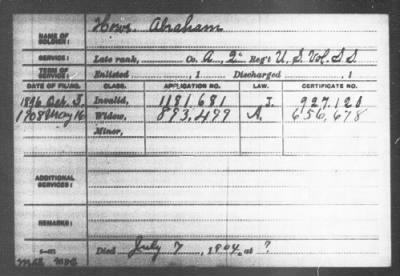 NAME OF SOLDIER: Hows, Abraham
SERVICE: Late rank, Co. A, 2" Reg't U. S. Vol. S S
TERM OF SERVICE: Enlisted , 1 Discharged , 1
DATE OF FILING. CLASS. APPLICATION NO. LAW. CERTIFICATE NO.
1896 Oct. 3. Invalid, 1181,681 J. 927,120
1908 May 16 Widow, 893,499 A. 656,678
Minor,
ADDITIONAL SERVICES:
REMARKS:
Died July 7, 1904, at ?